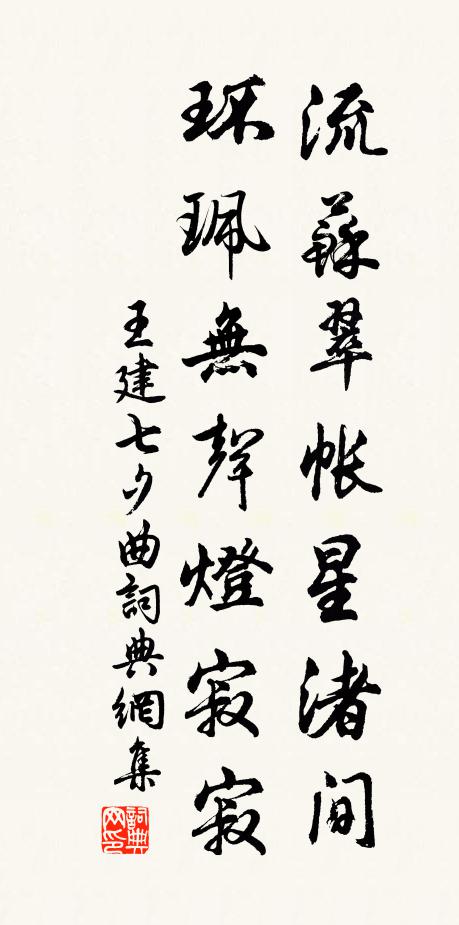 流蘇翠帳星渚間
环珮無聲燈寂寂
王建七夕曲詞典網集
詞典网印